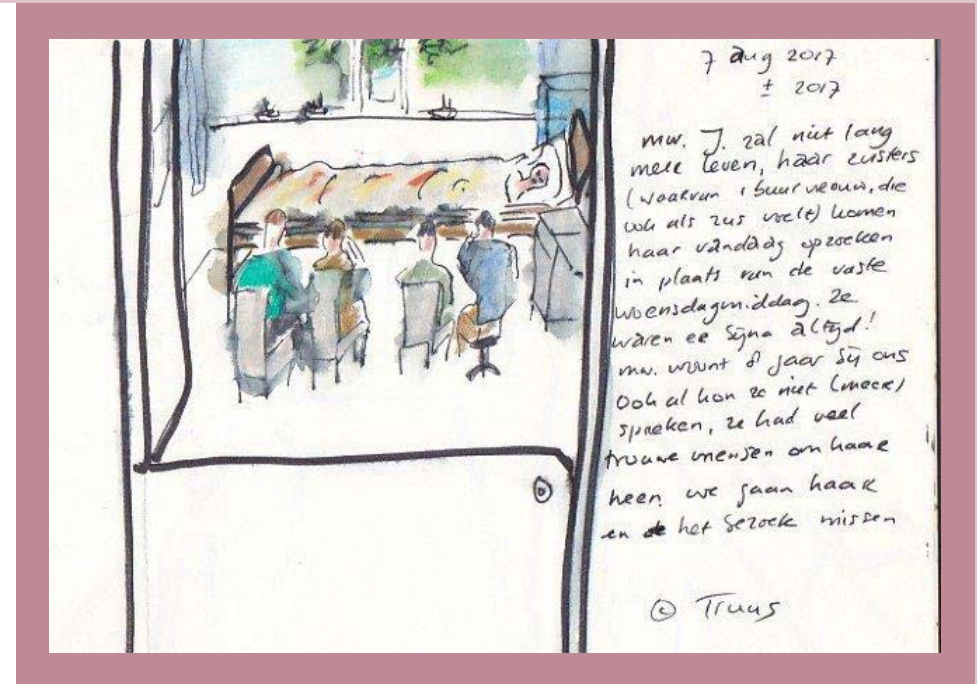 7 aug 2017
± 2017
mw. J. zal niet lang
meer leven, haar zusters
(waarvan 1 buurvrouw, die
ook als zus voelt) komen
haar vandaag opzoeken
in plaats van de vaste
woensdagmiddag. Ze
waren er bijna altijd!
mw. woont 8 jaar bij ons
Ook al kon ze niet (meer)
spreken, ze had veel
trouwe mensen om haar
heen. we gaan haar
en het bezoek missen
© Truus